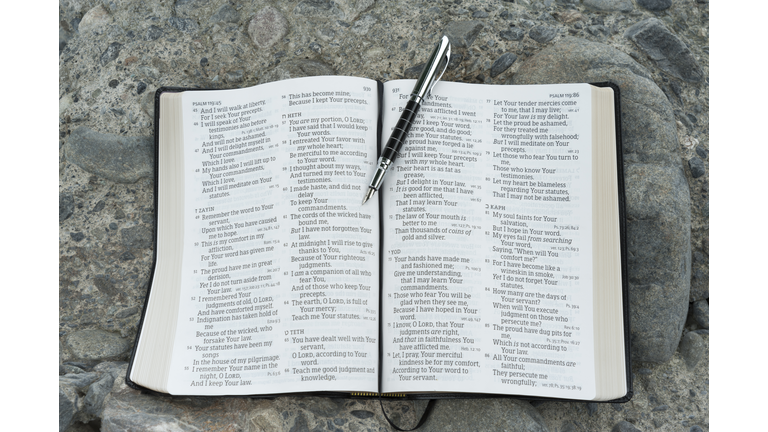 PSALM 119:45
930
45 And I will walk at liberty,
For I seek Your precepts.
46 I will speak of Your
testimonies also before
kings,
And will not be ashamed.
47 And I will delight myself in
Your commandments,
Which I love.
48 My hands also I will lift up
to Your commandments,
Which I love,
And I will meditate on Your
statutes.
ז ZAYIN
49 Remember the word to Your
servant,
Upon which You have caused
me to hope.
50 This is my comfort in my
affliction,
For Your word has given me
life.
51 The proud have me in great
derision,
Yet I do not turn aside from
Your law.
52 I remembered Your
judgments of old, O LORD,
And have comforted myself.
53 Indignation has taken hold of
me
Because of the wicked, who
forsake Your law.
54 Your statutes have been my
songs
In the house of my pilgrimage.
55 I remember Your name in the
night, O LORD,
And I keep Your law.
56 This has become mine,
Because I kept Your precepts.
ח HETH
57 You are my portion, O LORD;
I have said that I would keep
Your words.
58 I entreated Your favor with
my whole heart;
Be merciful to me according
to Your word.
59 I thought about my ways,
And turned my feet to Your
testimonies.
60 I made haste, and did not
delay
To keep Your
commandments.
61 The cords of the wicked have
bound me,
But I have not forgotten Your
law.
62 At midnight I will rise to give
thanks to You,
Because of Your righteous
judgments.
63 I am a companion of all who
fear You,
And of those who keep Your
precepts.
64 The earth, O LORD, is full of
Your mercy;
Teach me Your statutes.
ט TETH
65 You have dealt well with Your
servant,
O LORD, according to Your
word.
66 Teach me good judgment and
knowledge,
931
PSALM 119:86
For I Your
was afflicted I went
now I keep Your word.
are good, and do good;
me Your statutes.
proud have forged a lie
against me,
But I will keep Your precepts
with my whole heart.
70 Their heart is as fat as
grease,
But I delight in Your law.
71 It is good for me that I have
been afflicted,
That I may learn Your
statutes.
72 The law of Your mouth is
better to me
Than thousands of coins of
gold and silver.
YOD
73 Your hands have made me
and fashioned me;
Give me understanding,
that I may learn Your
commandments.
74 Those who fear You will be
glad when they see me,
Because I have hoped in Your
word.
75 I know, O LORD, that Your
judgments are right,
And that in faithfulness You
have afflicted me.
76 Let, I pray, Your merciful
kindness be for my comfort,
According to Your word to
Your servant.
77 Let Your tender mercies come
to me, that I may live;
For Your law is my delight.
78 Let the proud be ashamed,
For they treated me
wrongfully with falsehood;
But I will meditate on Your
precepts.
79 Let those who fear You turn to
me,
Those who know Your
testimonies.
80 Let my heart be blameless
regarding Your statutes,
That I may not be ashamed.
כ KAPH
81 My soul faints for Your
salvation,
But I hope in Your word.
82 My eyes fail from searching
Your word,
Saying, "When will You
comfort me?"
83 For I have become like a
wineskin in smoke,
Yet I do not forget Your
statutes.
84 How many are the days of
Your servant?
When will You execute
judgment on those who
persecute me?
85 The proud have dug pits for
me,
Which is not according to
Your law.
86 All Your commandments are
faithful;
They persecute me
wrongfully;